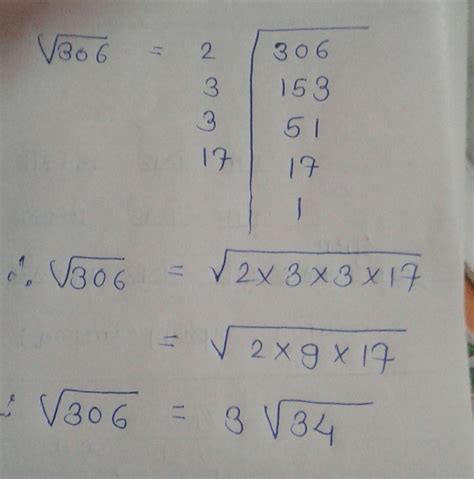 √306 = 2 | 306
3 | 153
3 | 51
17 | 17
1
∴ √306 = √2×3×3×17
= √2×9×17
∴ √306 = 3√34